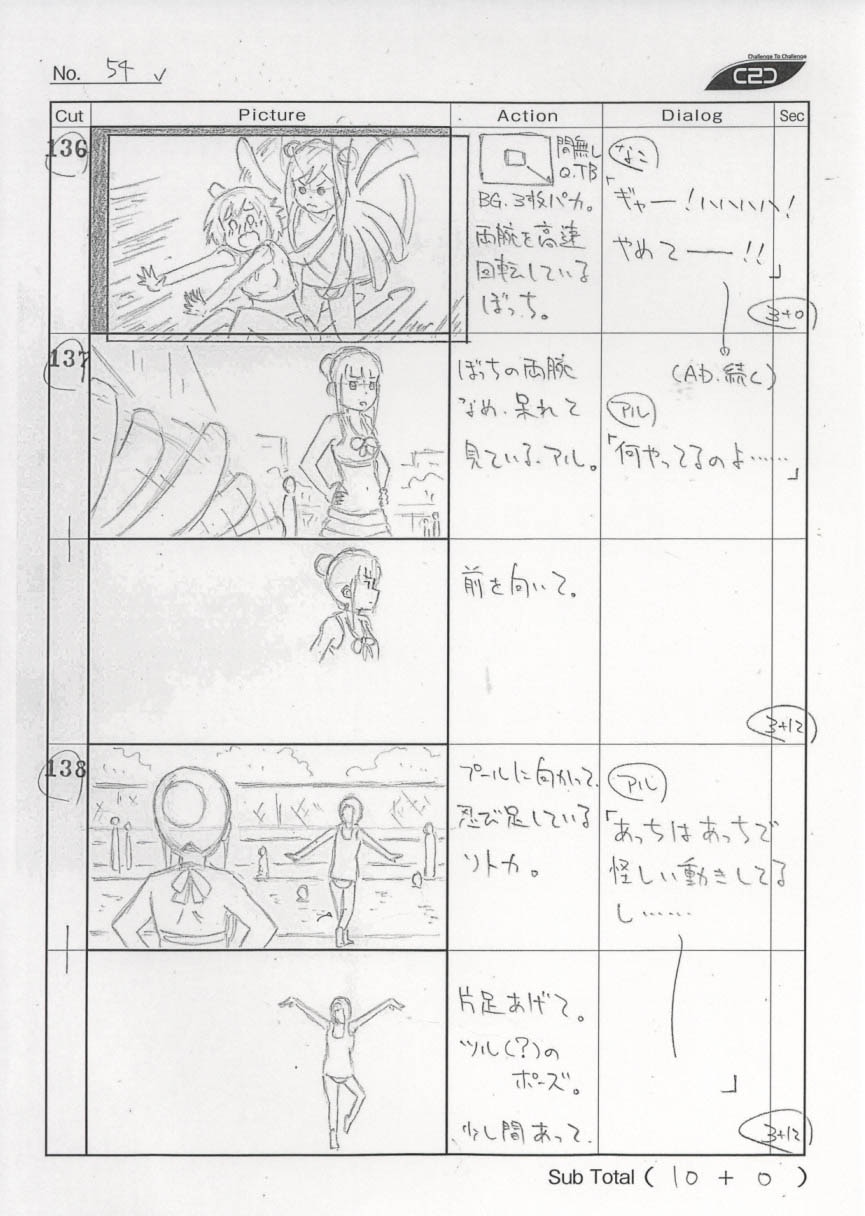 No. 54
Challenge To Challenge
C2C
Cut Picture Action Dialog Sec
136
間無し
Q.TB
BG.3枚パカ。
両腕を高速
回転している
ぼっち。
なこ
「ギャー!ハハハハ!
やめてーー!!」
3+0
137
ぼっちの両腕
なめ、呆れて
見ている、アル。
(AD.続く)
アル
「何やってるのよ……」
前を向いて。
3+12
138
プールに向かって、
忍び足している
ソトカ。
アル
「あっちはあっちで
怪しい動きしてる
し……
片足あげて。
ツル(?)の
ポーズ。
少し間あって、
」
3+12
Sub Total ( 10 + 0 )